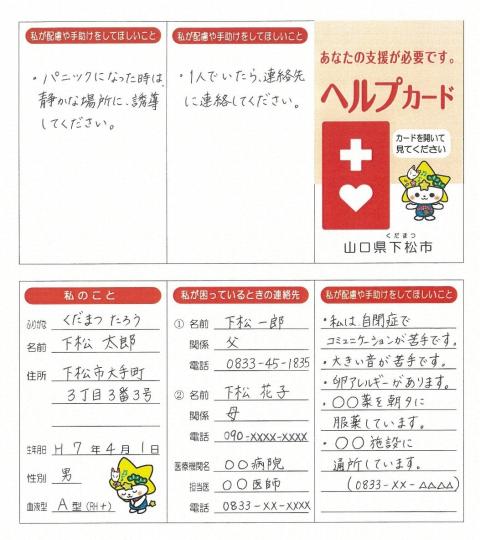 私が配慮や手助けをしてほしいこと
・パニックになった時は、
静かな場所に、誘導
してください。
私が配慮や手助けをしてほしいこと
・1人でいたら、連絡先
に連絡してください。
あなたの支援が必要です。
ヘルプカード
カードを開いて
見てください
くだまつ
山口県下松市
私のこと
ふりがな くだまつ たろう
名前 下松 太郎
住所 下松市大手町
3丁目3番3号
生年月日 H7年4月1日
性別 男
血液型 A型(RH+)
私が困っているときの連絡先
① 名前 下松 一郎
関係 父
電話 0833-45-1835
② 名前 下松 花子
関係 母
電話 090-xxxx-xxxx
医療機関名 〇〇病院
担当医 〇〇医師
電話 0833-xx-xxxx
私が配慮や手助けをしてほしいこと
・私は、自閉症で
コミュニケーションが苦手です。
・大きい音が苦手です。
・卵アレルギーがあります。
・〇〇薬を朝夕に
服薬しています。
・〇〇施設に
通所しています。
(0833-xx-△△△△)